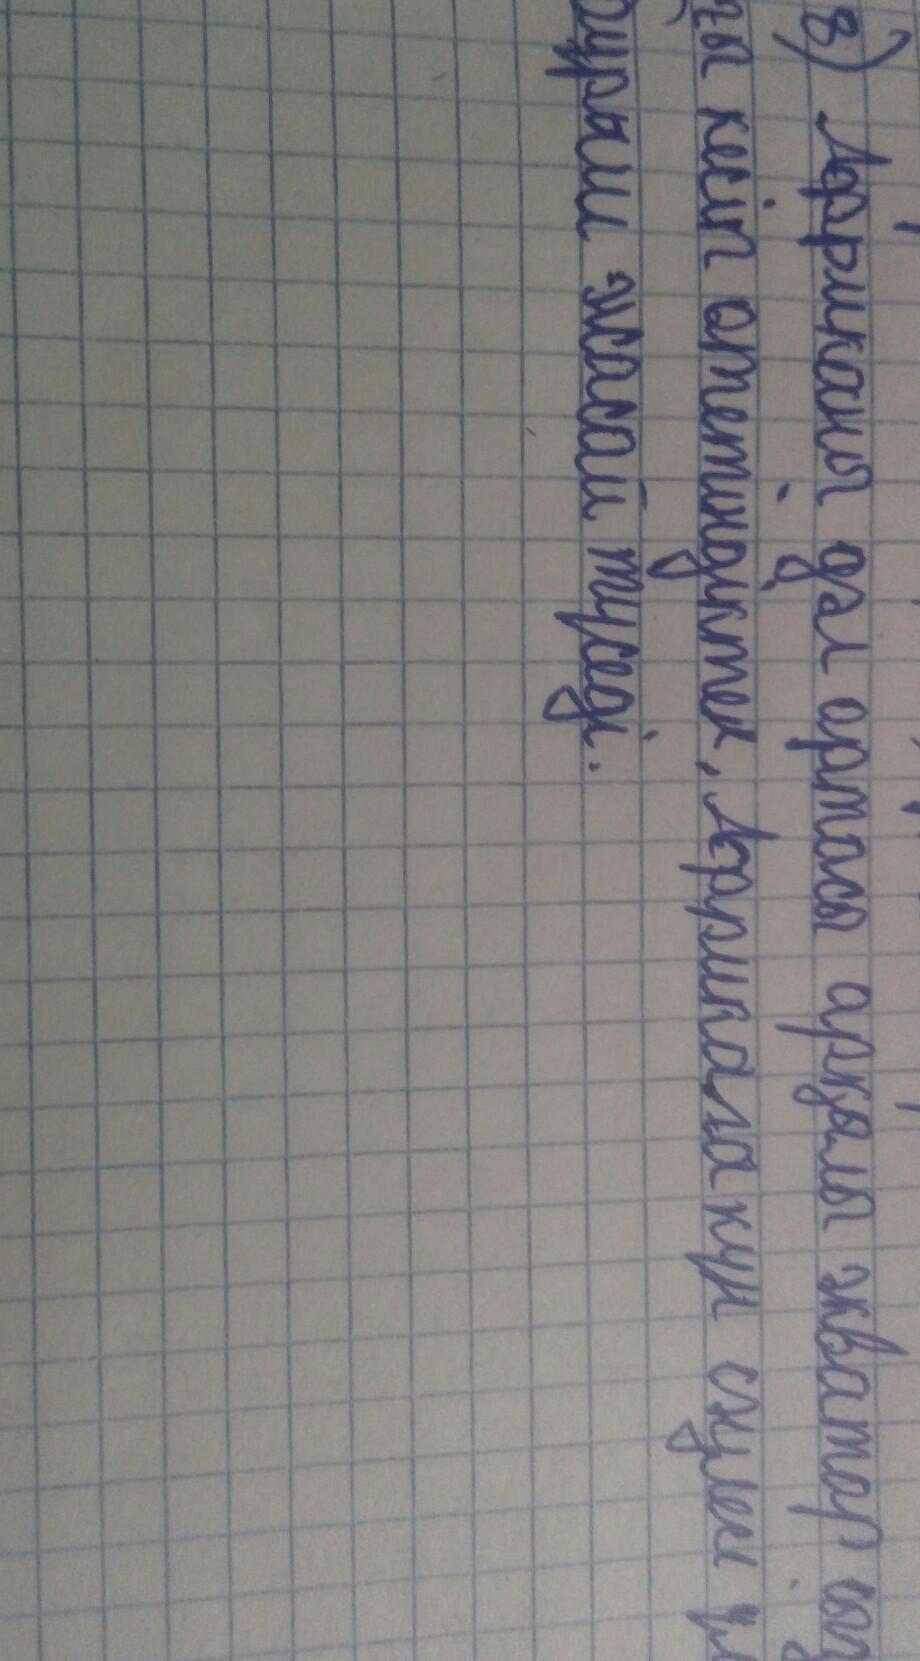 8) Африканы дәл ортасы арқылы экватор сыз
ғы кесіп өтетіндіктен, Африкаға күн сәулесі үл
бұрыш жасай түседі.